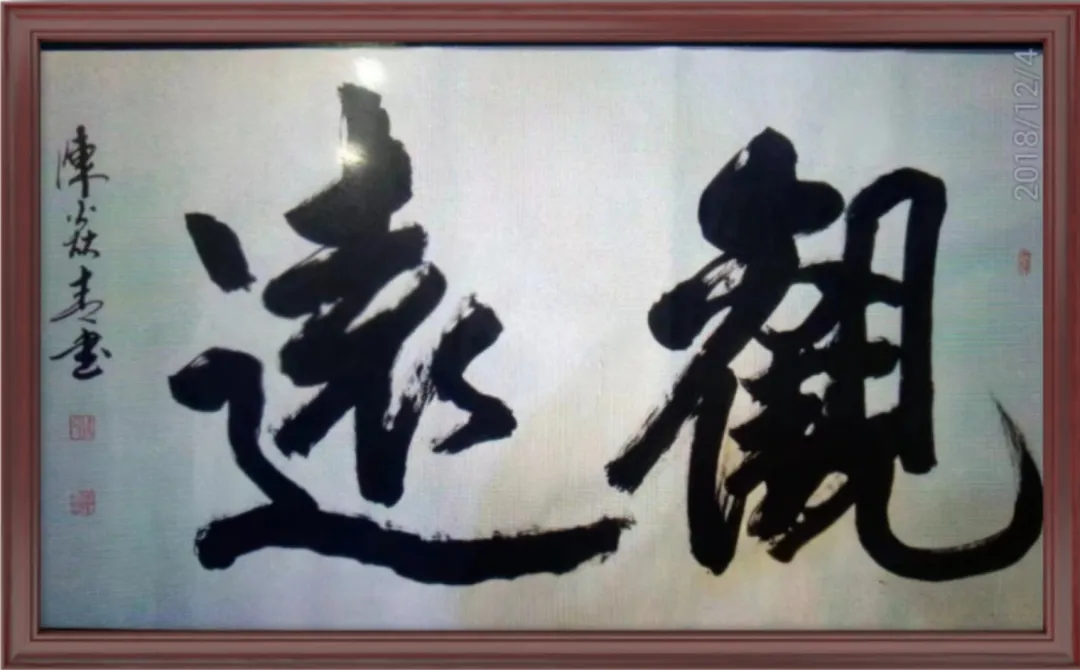 觀遠
陳焱青書
2018/12/4